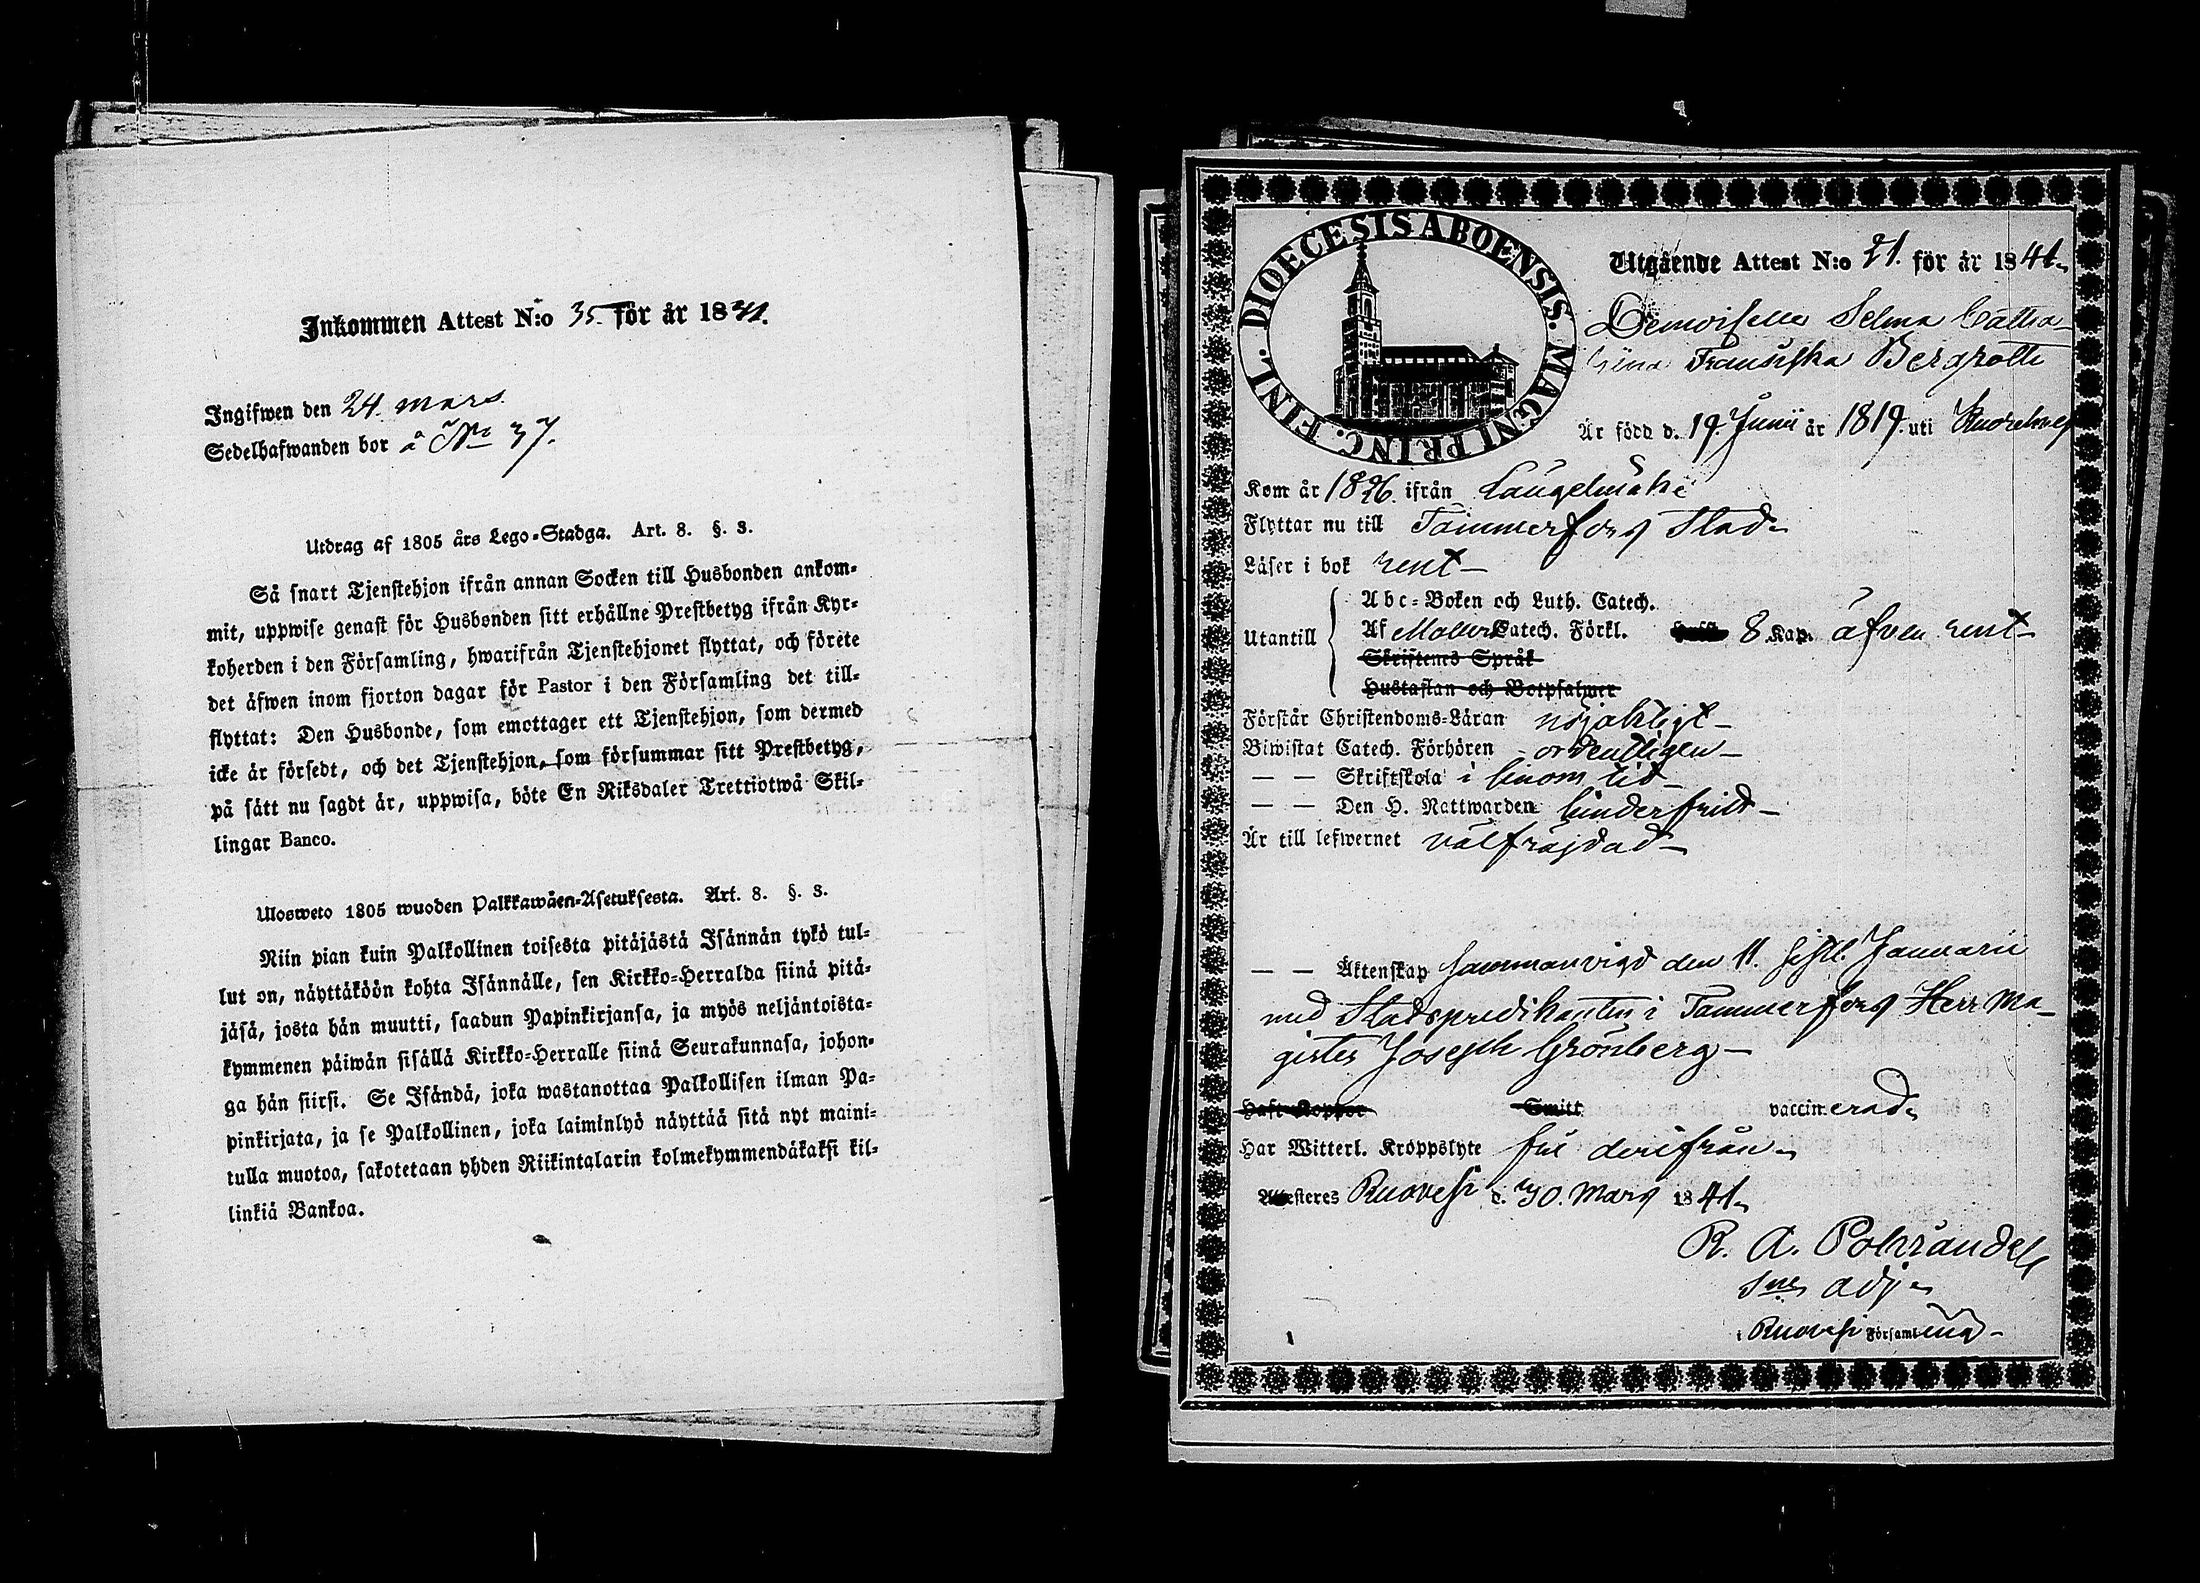 Inkommen Attest N:o 35. för år 1841.
Ingifwen den 24. mars.
Sedelhafwanden bor å No 37.
Utdrag af 1805 års Lego-Stadga. Art. 8. §. 3.
Så snart Tjenstehjon ifrån annan Socken till Husbonden ankom-
mit, uppwise genast för Husbonden sitt erhållne Prestbetyg ifrån Kyr-
koherden i den Församling, hwarifrån Tjenstehjonet flyttat, och förete
det äfwen inom fjorton dagar för Pastor i den Församling det till-
flyttat: Den Husbonde, som emottager ett Tjenstehjon, som dermed
icke är försedt, och det Tjenstehjon, som försummar sitt Prestbetyg,
på sätt nu sagdt är, uppwisa, böte En Riksdaler Trettiotwå Skil-
lingar Banco.
Ulosweto 1805 wuoden Palkkawäen-Asetuksesta. Art. 8. §. 3.
Niin pian kuin Palkollinen toisesta pitäjästä Isännän tykö tul-
lut on, näyttäköön kohta Isännälle, sen Kirkko-Herralda siinä pitä-
jäsä, josta hän muutti, saadun Papinkirjansa, ja myös neljäntoista-
kymmenen päiwän sisällä Kirkko-Herralle siinä Seurakunnasa, johon-
ga hän siirsi. Se Isändä, joka wastanottaa Palkollisen ilman Pa-
pinkirjata, ja se Palkollinen, joka laiminlyö näyttää sitä nyt maini-
tulla muotoa, sakotetaan yhden Riikintalarin kolmekymmendäkaksi kil-
linkiä Bankoa.
DIOECESIS ABOENSIS. MAGNI PRINC. FINL.
Utgående Attest N:o 21. för år 1841.
Demoiselle Selma Catha-
rina Fransiska Bergroth
Är född d. 19. Junii år 1819. uti Kuorehvesi
Kom år 1826. ifrån Längelmäki
Flyttar nu till Tammerfors Stad.
Läser i bok rent-
Abc-Boken och Luth. Catech.
Utantill Af Möllers Catech. Förkl. 8 Kap. äfven rent-
Skriftenes Språk
Hustaflan och Botpsalmer
Förstår Christendoms-Läran nöjaktigt-
Biwistat Catech. Förhören ordentligen-
— — Skriftskola i sinom tid-
— — Den H. Nattwarden hinderfritt-
Är till lefwernet välfräjdad-
— — Äktenskap sammanvigd den 11. sistl. Januarii
med Stadspredikanten i Tammerfors Herr Ma-
gister Joseph Grönberg-
Haft Koppor Smitt vaccinerad.
Har Witterl. Kroppslyte fri derifrån.
Attesteres Ruovesi d. 30. Mars 1841.
R. A. Pohrandell
adj.
i Ruovesi Församling-